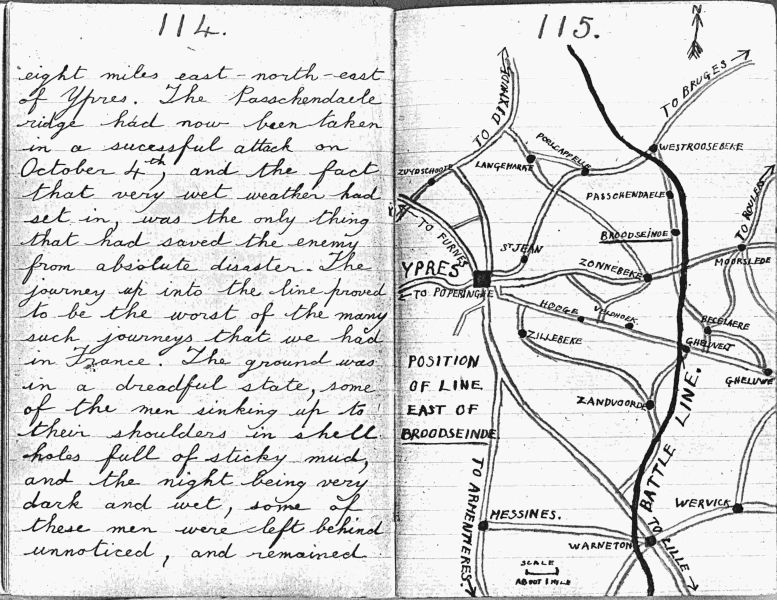 114.
eight miles east-north-east
of Ypres. The Passchendaele
ridge had now been taken
in a sucessful attack on
October 4th, and the fact
that very wet weather had
set in, was the only thing
that had saved the enemy
from absolute disaster. The
journey up into the line proved
to be the worst of the many
such journeys that we had
in France. The ground was
in a dreadful state, some
of the men sinking up to
their shoulders in shell
holes full of sticky mud,
and the night being very
dark and wet, some of
these men were left behind
unnoticed, and remained
115.
N
TO BRUGES
TO DIXMUDE
WESTROOSEBEKE
POELCAPPELLE
LANGEMARKE
ZUYDSCHOOTE
PASSCHENDAELE
TO ROULERS
BROODSEINDE
TO FURNES
ST JEAN
MOORSLEDE
YPRES
ZONNEBEKE
TO POPERINGHE
HOOGE
VELDHOEK
BECELAERE
ZILLEBEKE
GHELUVELT
GHELUWE
POSITION
OF LINE
EAST OF
BROODSEINDE
ZANDVOORDE
BATTLE LINE.
TO ARMENTIERES.
MESSINES.
WERVICK
WARNETON
TO LILLE
SCALE
ABOUT 1 MILE